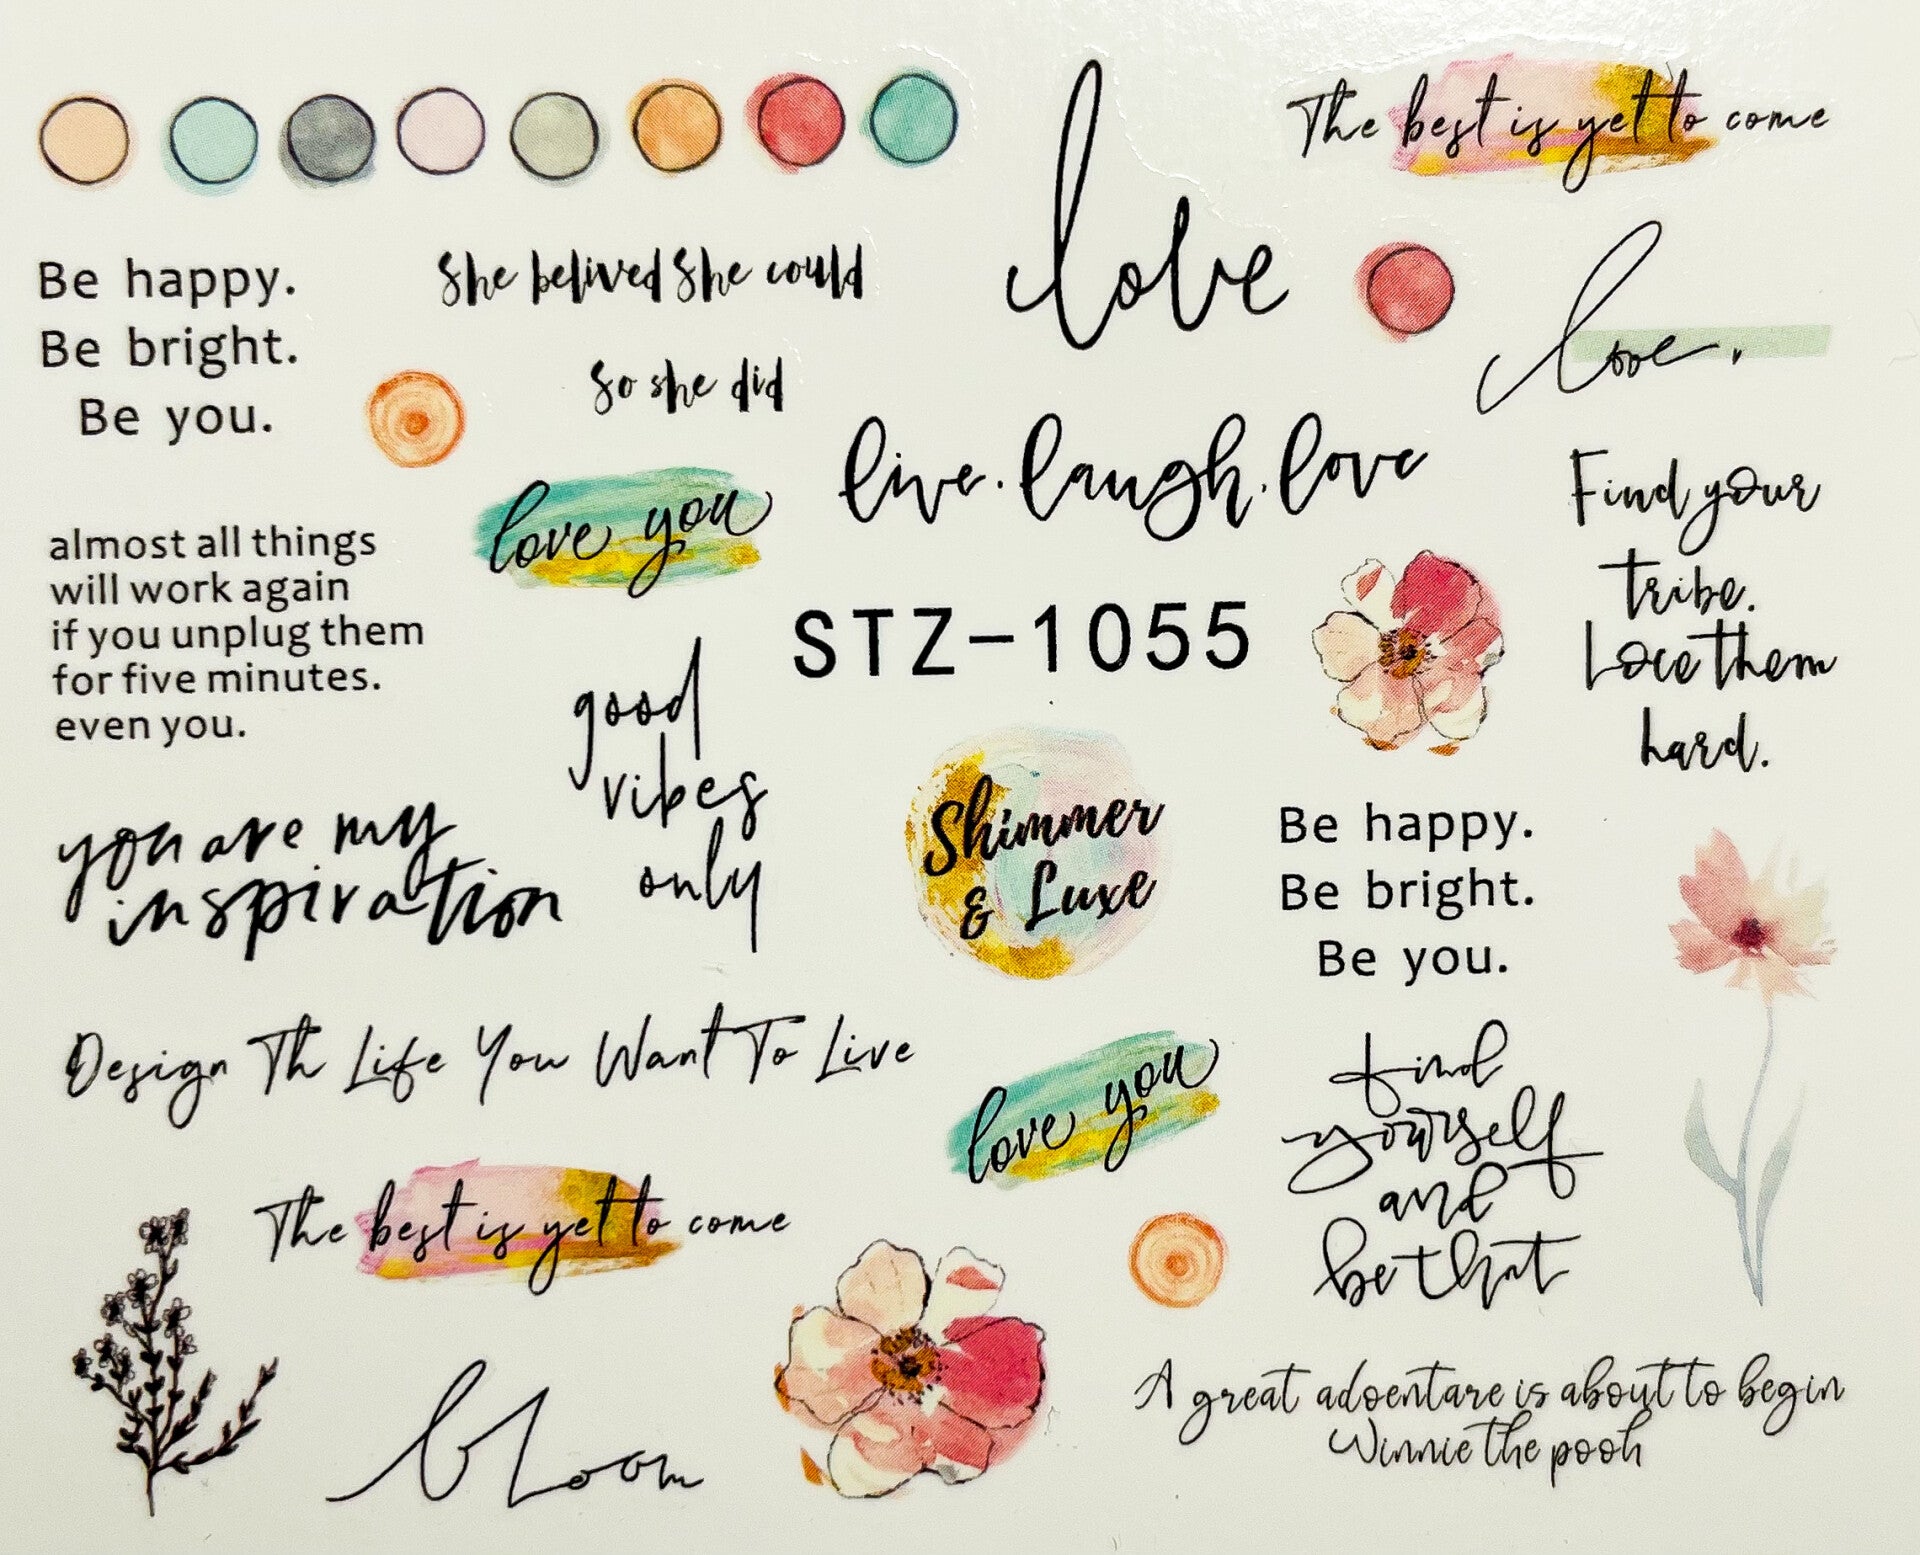 The best is yet to come
love
Be happy.
Be bright.
Be you.
She belived She could
So she did
love.
live. laugh. love
Find your
tribe.
Love them
hard.
love you
almost all things
will work again
if you unplug them
for five minutes.
even you.
STZ-1055
good
vibes
only
Shimmer
& Luxe
you are my
inspiration
Be happy.
Be bright.
Be you.
Design Th Life You Want To Live
love you
find
yourself
and
be that
The best is yet to come
bloom
A great adventare is about to begin
Winnie the pooh